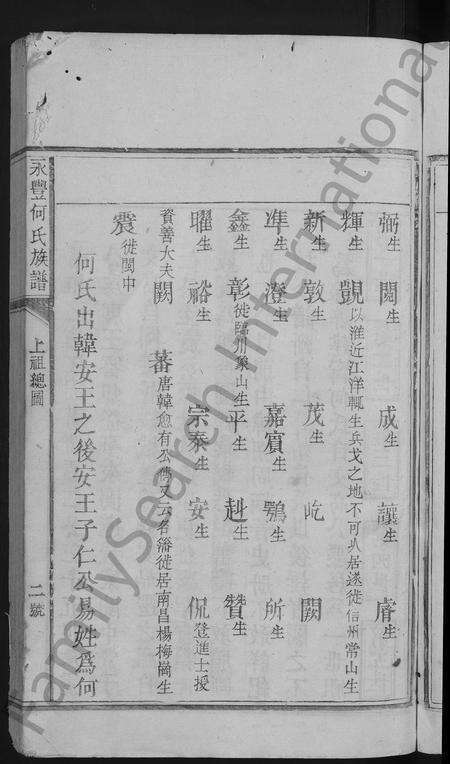 弼生 閎生 成生 讓生 膺生
輝生 覬以淮近江洋輒生兵戈之地不可㕥居遂徙信州常山生
新生 敦生 茂生 屹 闕
準生 澄生 嘉賓生 鶚生 所生
鑫生 彰徙臨川象山生 平生 赳生 贊生
曜生 裕生 宗泰生 安生 侃登進士授
資善大夫 闕 蕃唐韓愈有公傳又云名籓徙居南昌楊梅崗生
震徙閩中
何氏出韓安王之後安王子仁公易姓爲何
永豐何氏族譜
上祖總圖
二號
FamilySearch International